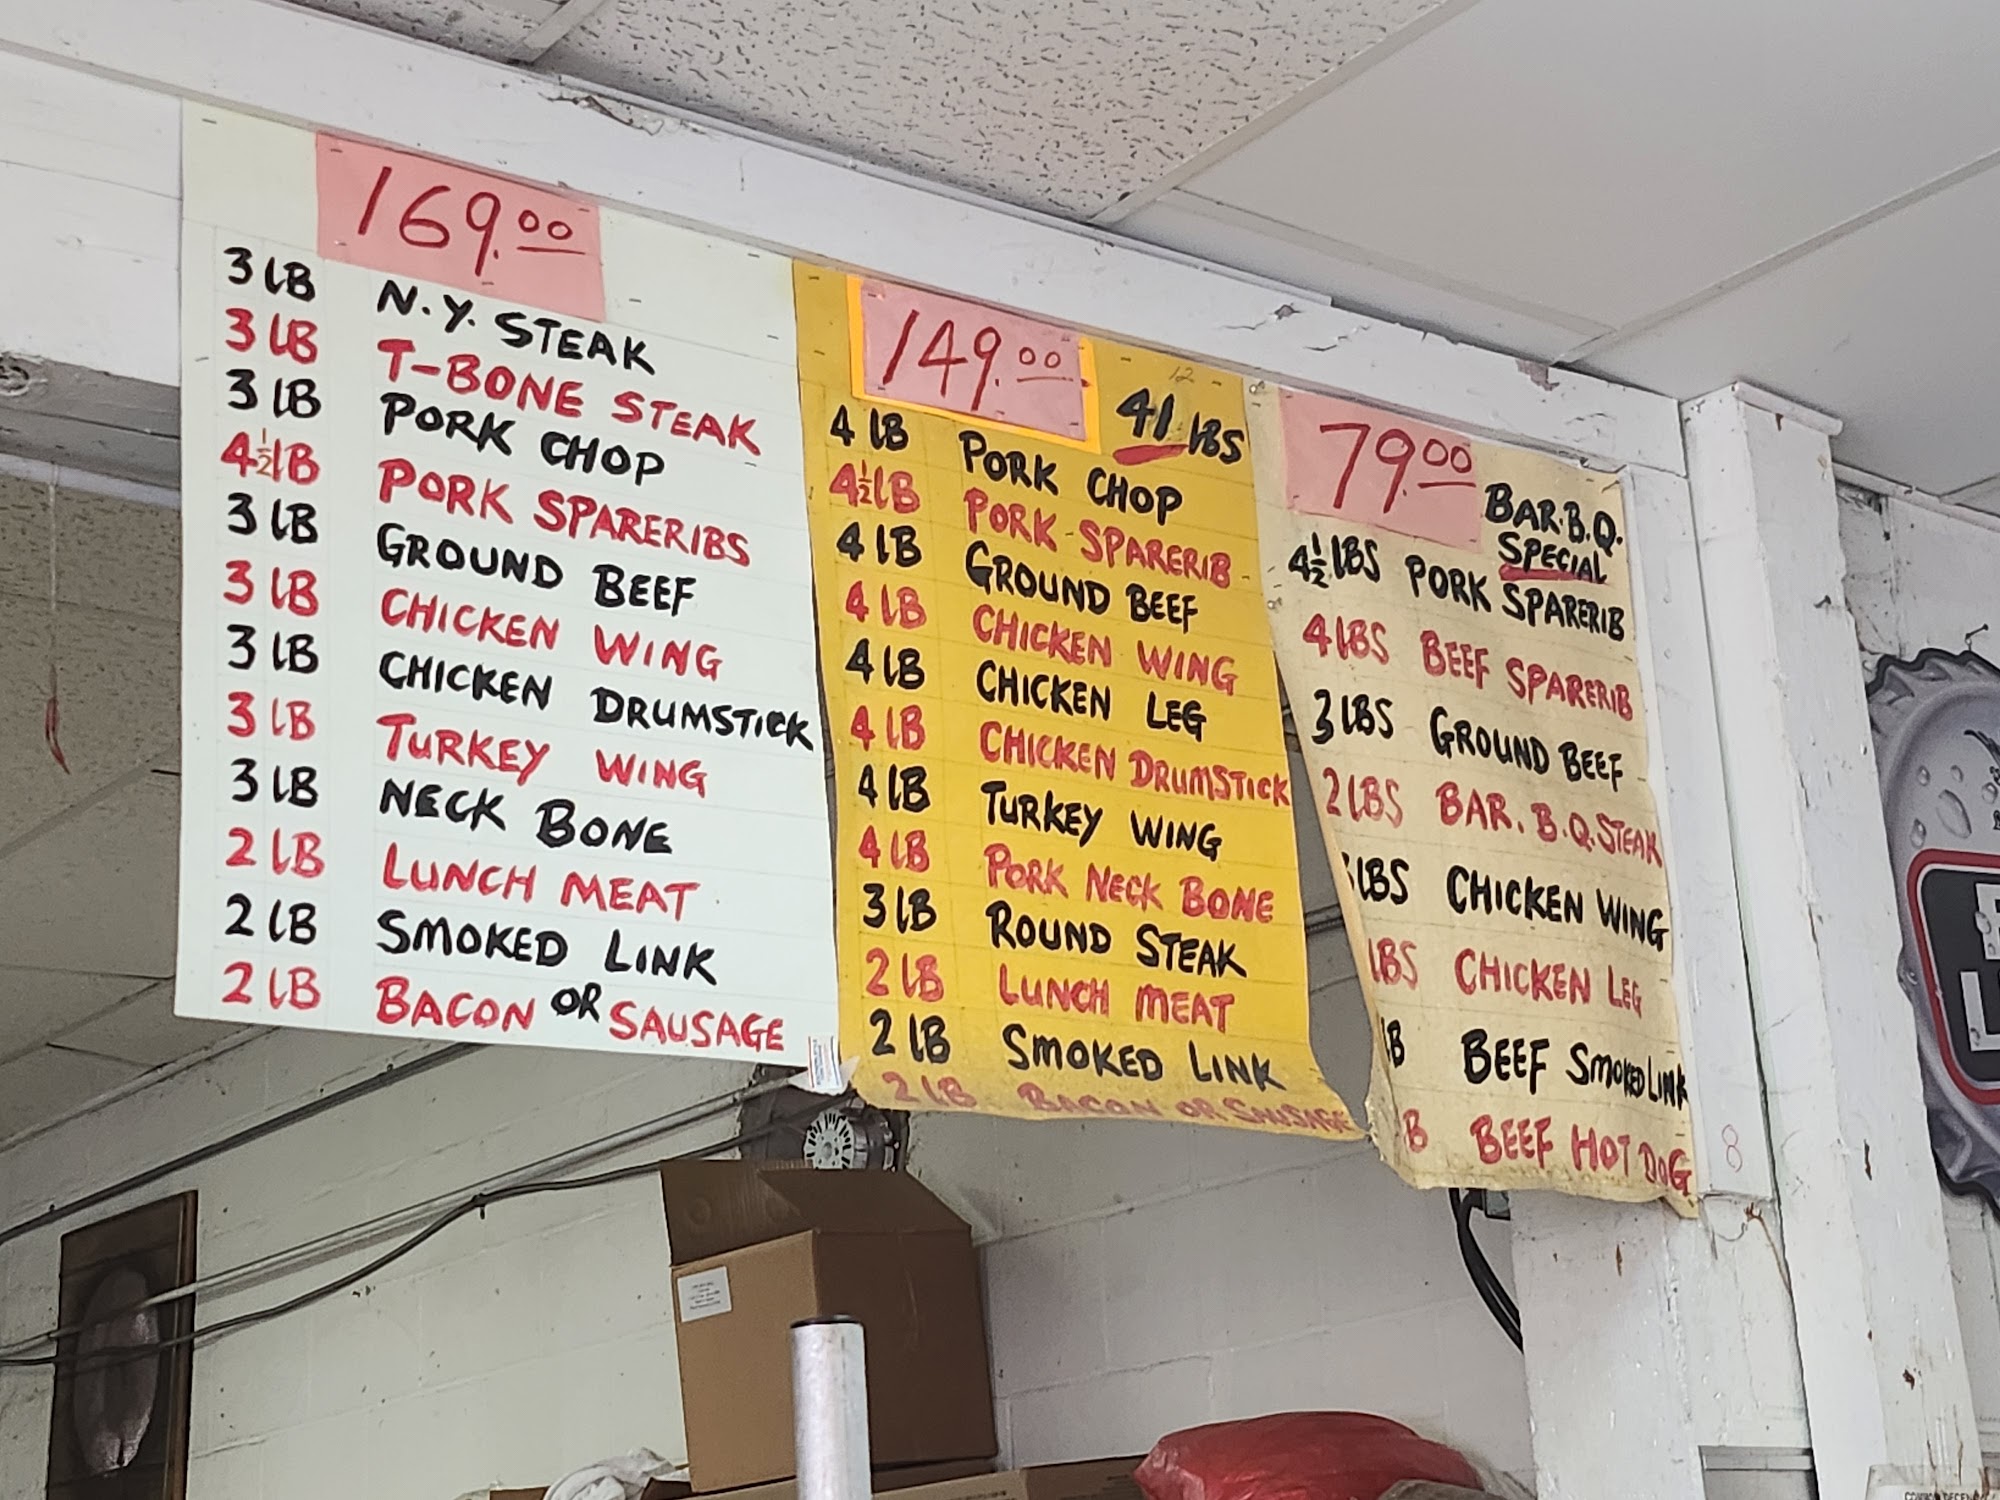 169.00
3 LB N.Y. STEAK
3 LB T-BONE STEAK
3 LB PORK CHOP
4 1/2 LB PORK SPARERIBS
3 LB GROUND BEEF
3 LB CHICKEN WING
3 LB CHICKEN DRUMSTICK
3 LB TURKEY WING
3 LB NECK BONE
2 LB LUNCH MEAT
2 LB SMOKED LINK
2 LB BACON OR SAUSAGE
149.00
12
41 LBS
4 LB PORK CHOP
4 1/2 LB PORK SPARERIB
4 LB GROUND BEEF
4 LB CHICKEN WING
4 LB CHICKEN LEG
4 LB CHICKEN DRUMSTICK
4 LB TURKEY WING
4 LB PORK NECK BONE
3 LB ROUND STEAK
2 LB LUNCH MEAT
2 LB SMOKED LINK
2 LB BACON OR SAUSAGE
79.00
BAR.B.Q.
SPECIAL
4 1/2 LBS PORK SPARERIB
4 LBS BEEF SPARERIB
3 LBS GROUND BEEF
2 LBS BAR.B.Q. STEAK
LBS CHICKEN WING
LBS CHICKEN LEG
B BEEF SMOKED LINK
B BEEF HOT DOG
8